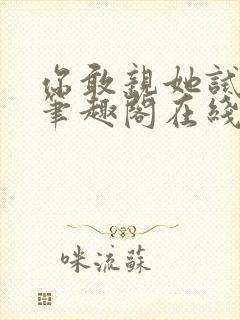 你敢親她試
筆趣閣在綫
咪流蘇